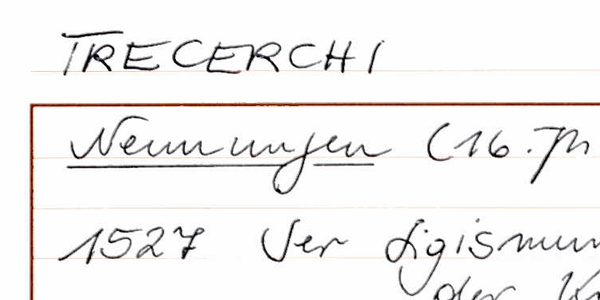 TRECERCHI
Nennungen (16. Jh
1527 Ser Sigismun
der